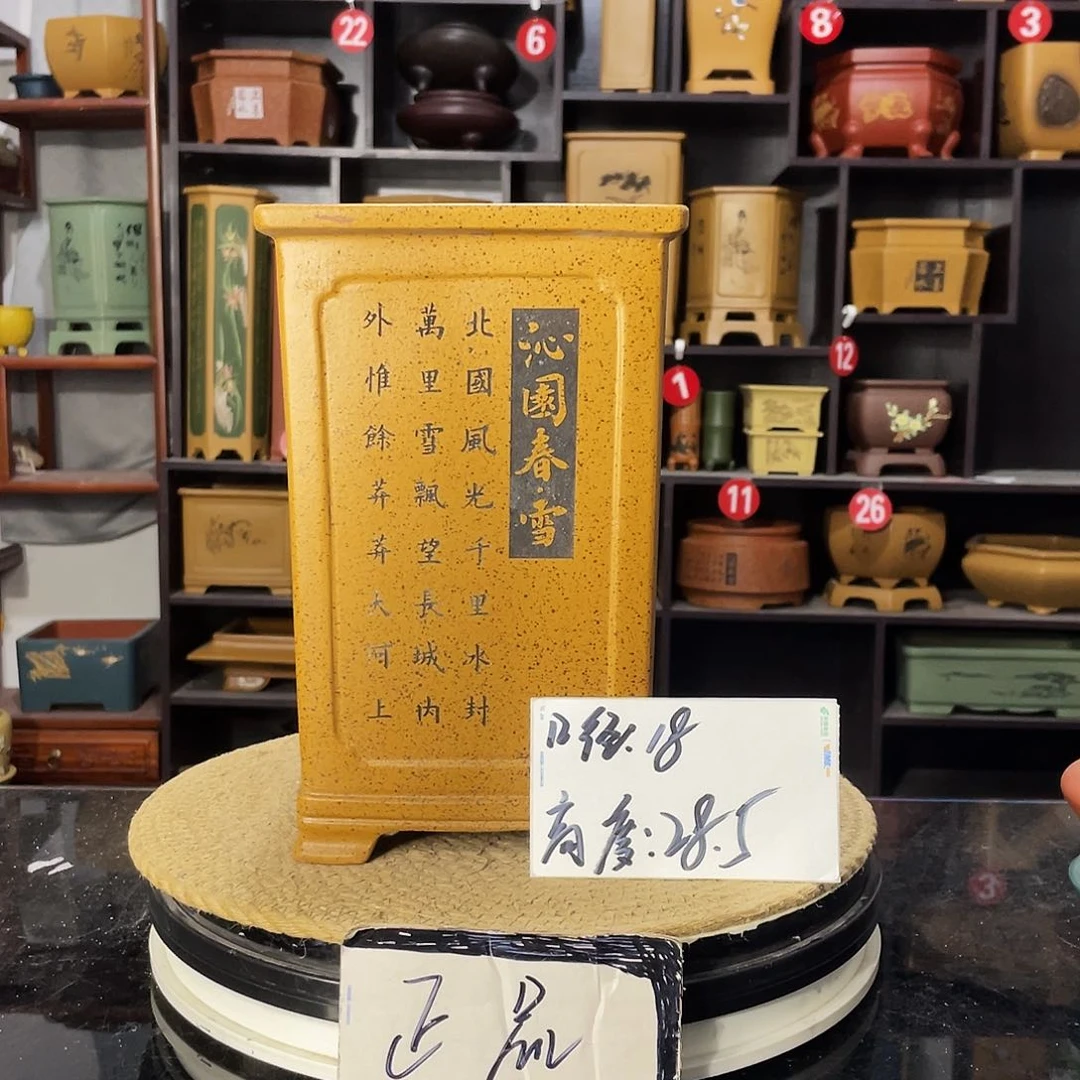 沁園春·雪
北國風光千里水封
萬里雪飄望長城内
外惟餘莽莽大河上
口径:18
高度:28.5
正品
22
6
8
3
1
12
11
26